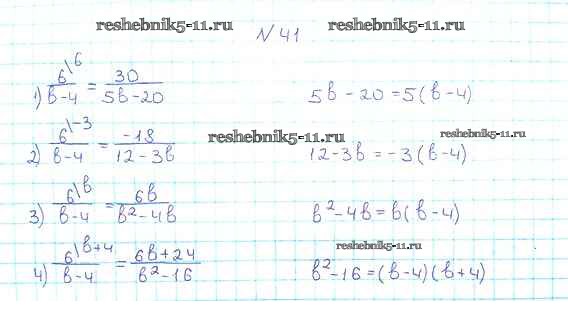 reshebnik5-11.ru № 41 reshebnik5-11.ru
1) 6\6/(b-4) = 30/(5b-20) 5b - 20 = 5(b-4)
reshebnik5-11.ru reshebnik5-11.ru
2) 6\-3/(b-4) = -18/(12-3b) 12-3b = -3(b-4)
3) 6\b/(b-4) = 6b/(b²-4b) b²-4b = b(b-4)
reshebnik5-11.ru
4) 6\b+4/(b-4) = 6b+24/(b²-16) b²-16 = (b-4)(b+4)